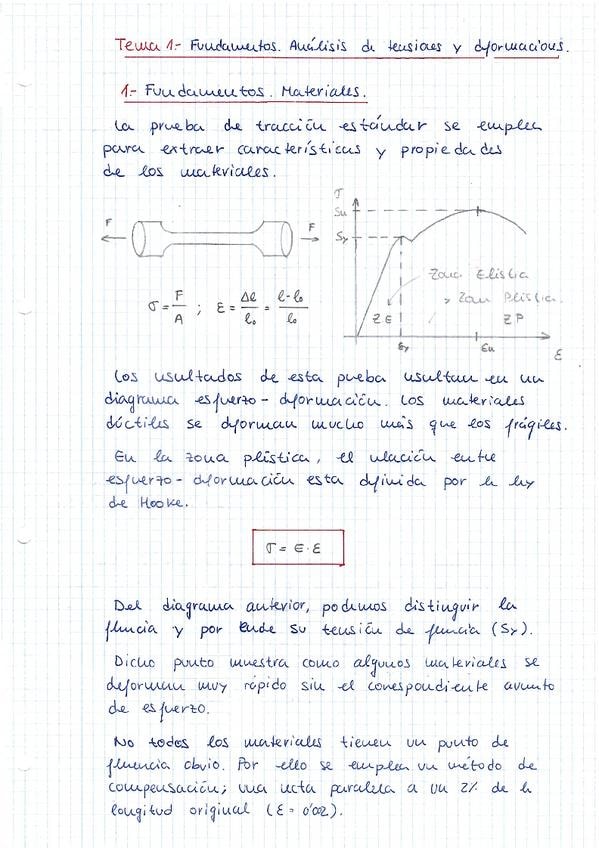 Tema 1.- Fundamentos. Análisis de tensiones y deformaciones.
1.- Fundamentos. Materiales.
La prueba de tracción estándar se emplea
para extraer características y propiedades
de los materiales.
F
F
σ = F/A ; ε = Δl/l₀ = l-l₀/l₀
σ
Su
Sy
Zona Elástica
> Zona Plástica.
ZE
ZP
εy
εu
ε
Los resultados de esta prueba resultan en un
diagrama esfuerzo - deformación. Los materiales
dúctiles se deforman mucho más que los frágiles.
En la zona plástica, el relación entre
esfuerzo - deformación esta definida por la ley
de Hooke.
σ = E · ε
Del diagrama anterior, podemos distinguir la
fluencia y por ende su tensión de fluencia (Sy).
Dicho punto muestra como algunos materiales se
deforman muy rápido sin el correspondiente aumento
de esfuerzo.
No todos los materiales tienen un punto de
fluencia obvio. Por ello se emplea un método de
compensación; una recta paralela a un 2% de la
longitud original (ε = 0'02).